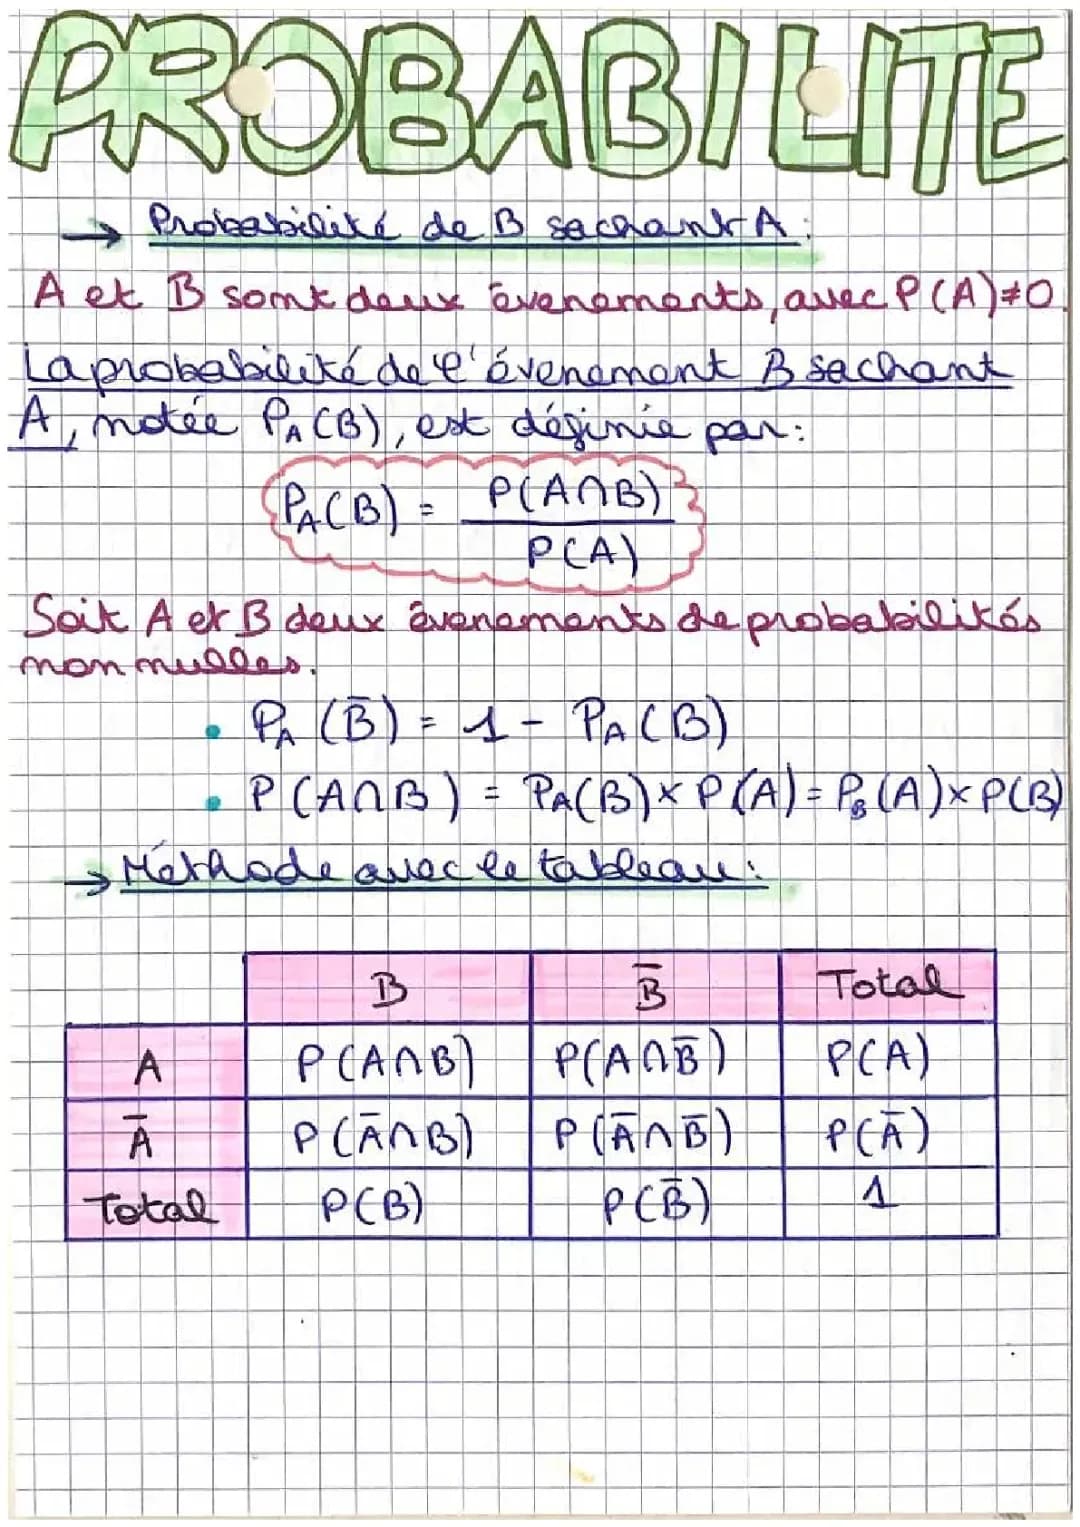 PROBABILITE
→ Probabilité de B sachant A :
A et B sont deux évenements, avec P(A)≠0.
La probabilité de l'évenement B sachant
A, notée P_A(B), est définie par :
P_A(B) = P(A∩B) / P(A)
Soit A et B deux évenements de probabilités
non nulles.
• P_A(B̄) = 1 - P_A(B)
• P(A∩B) = P_A(B) × P(A) = P_B(A) × P(B)
→ Méthode avec le tableau :
B B̄ Total
A P(A∩B) P(A∩B̄) P(A)
Ā P(Ā∩B) P(Ā∩B̄) P(Ā)
Total P(B) P(B̄) 1